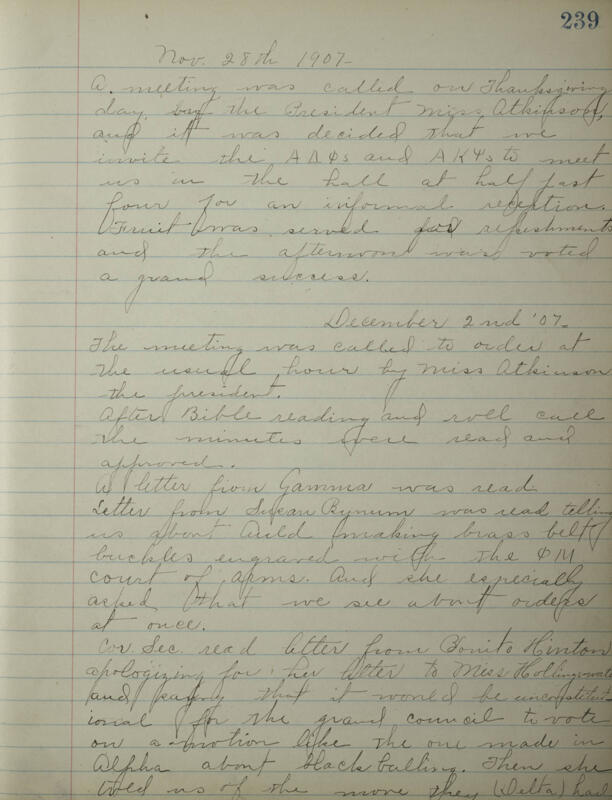 239
Nov. 28th 1907-
A. meeting was called on Thanksgiving
day by the President Miss Atkinson,
and it was decided that we
invite the ΑΔΦs and ΑΚΨs to meet
us in the hall at half past
four for an informal reception.
Fruit was served for refreshments
and the afternoon was voted
a grand success.
December 2nd '07-
The meeting was called to order at
the usual hour by Miss Atkinson
the president.
After Bible reading and roll call
the minutes were read and
approved.
A letter from Gamma was read.
Letter from Susan Bynum was read telling
us about Auld making brass belt
buckles engraved with the ΦΜ
court of arms. And she especially
asked that we see about orders
at once.
Cor. Sec. read letter from Bonito Hinton
apologizing for her letter to Miss
and saying that it would be unconstitut-
ional for the grand council to vote
on a motion like the one made in
Alpha about blackballing. Then she
told us of the move they (Delta) had